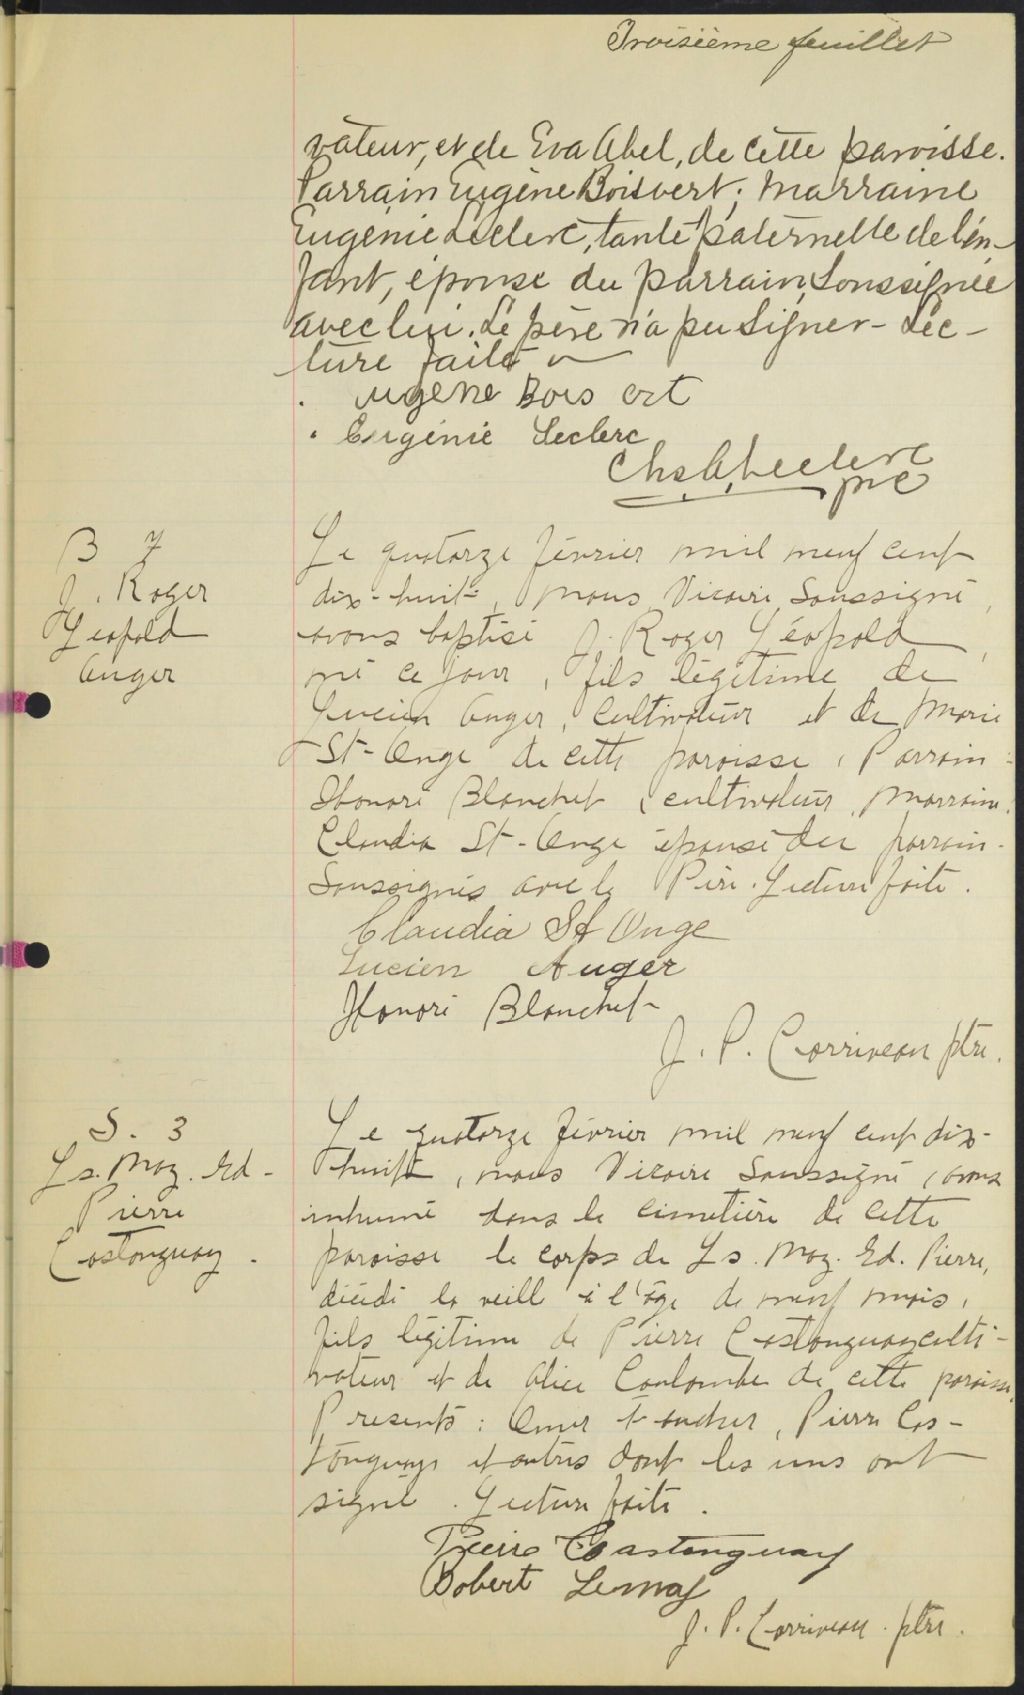 Troisième feuillet
vateur, et de Eva Abel, de cette paroisse.
Parrain Eugène Boisvert; Marraine
Eugénie Leclerc, tante paternelle de l'en-
fant, épouse du parrain, Soussignée
avec lui. Le père n'a pu signer - Lec-
ture faite
ugene Bois ert
Eugénie Leclerc
Chs. A. Leclerc
B 7
J. Roger
Léopold
Auger
Le quatorze février mil neuf cent
dix-huit, nous Vicaire Soussigné,
avons baptisé J. Roger Léopold,
né ce jour, fils légitime de
Lucien Auger, cultivateur et de Marie
St-Onge de cette paroisse. Parrain:
Honoré Blanchet, cultivateur, Marraine:
Claudia St-Onge épouse du parrain.
Soussignés avec le Père. Lecture faite.
Claudia St Onge
Lucien Auger
Honoré Blanchet
J. P. Corriveau ptre.
S. 3
Ls. Moz. Ed-
Pierre
Castonguay.
Le quatorze février mil neuf cent dix-
huit, nous Vicaire Soussigné, avons
inhumé dans le cimetière de cette
paroisse le corps de Ls. Moz. Ed. Pierre,
décédé la veille à l'âge de neuf mois,
fils légitime de Pierre Castonguay culti-
vateur et de Alice Coulombe de cette paroisse.
Présents: Omer, Pierre Cas-
tonguay et autres dont les uns ont
signé. Lecture faite.
Pierre Castonguay
Robert Lemay
J. P. Corriveau. ptre.